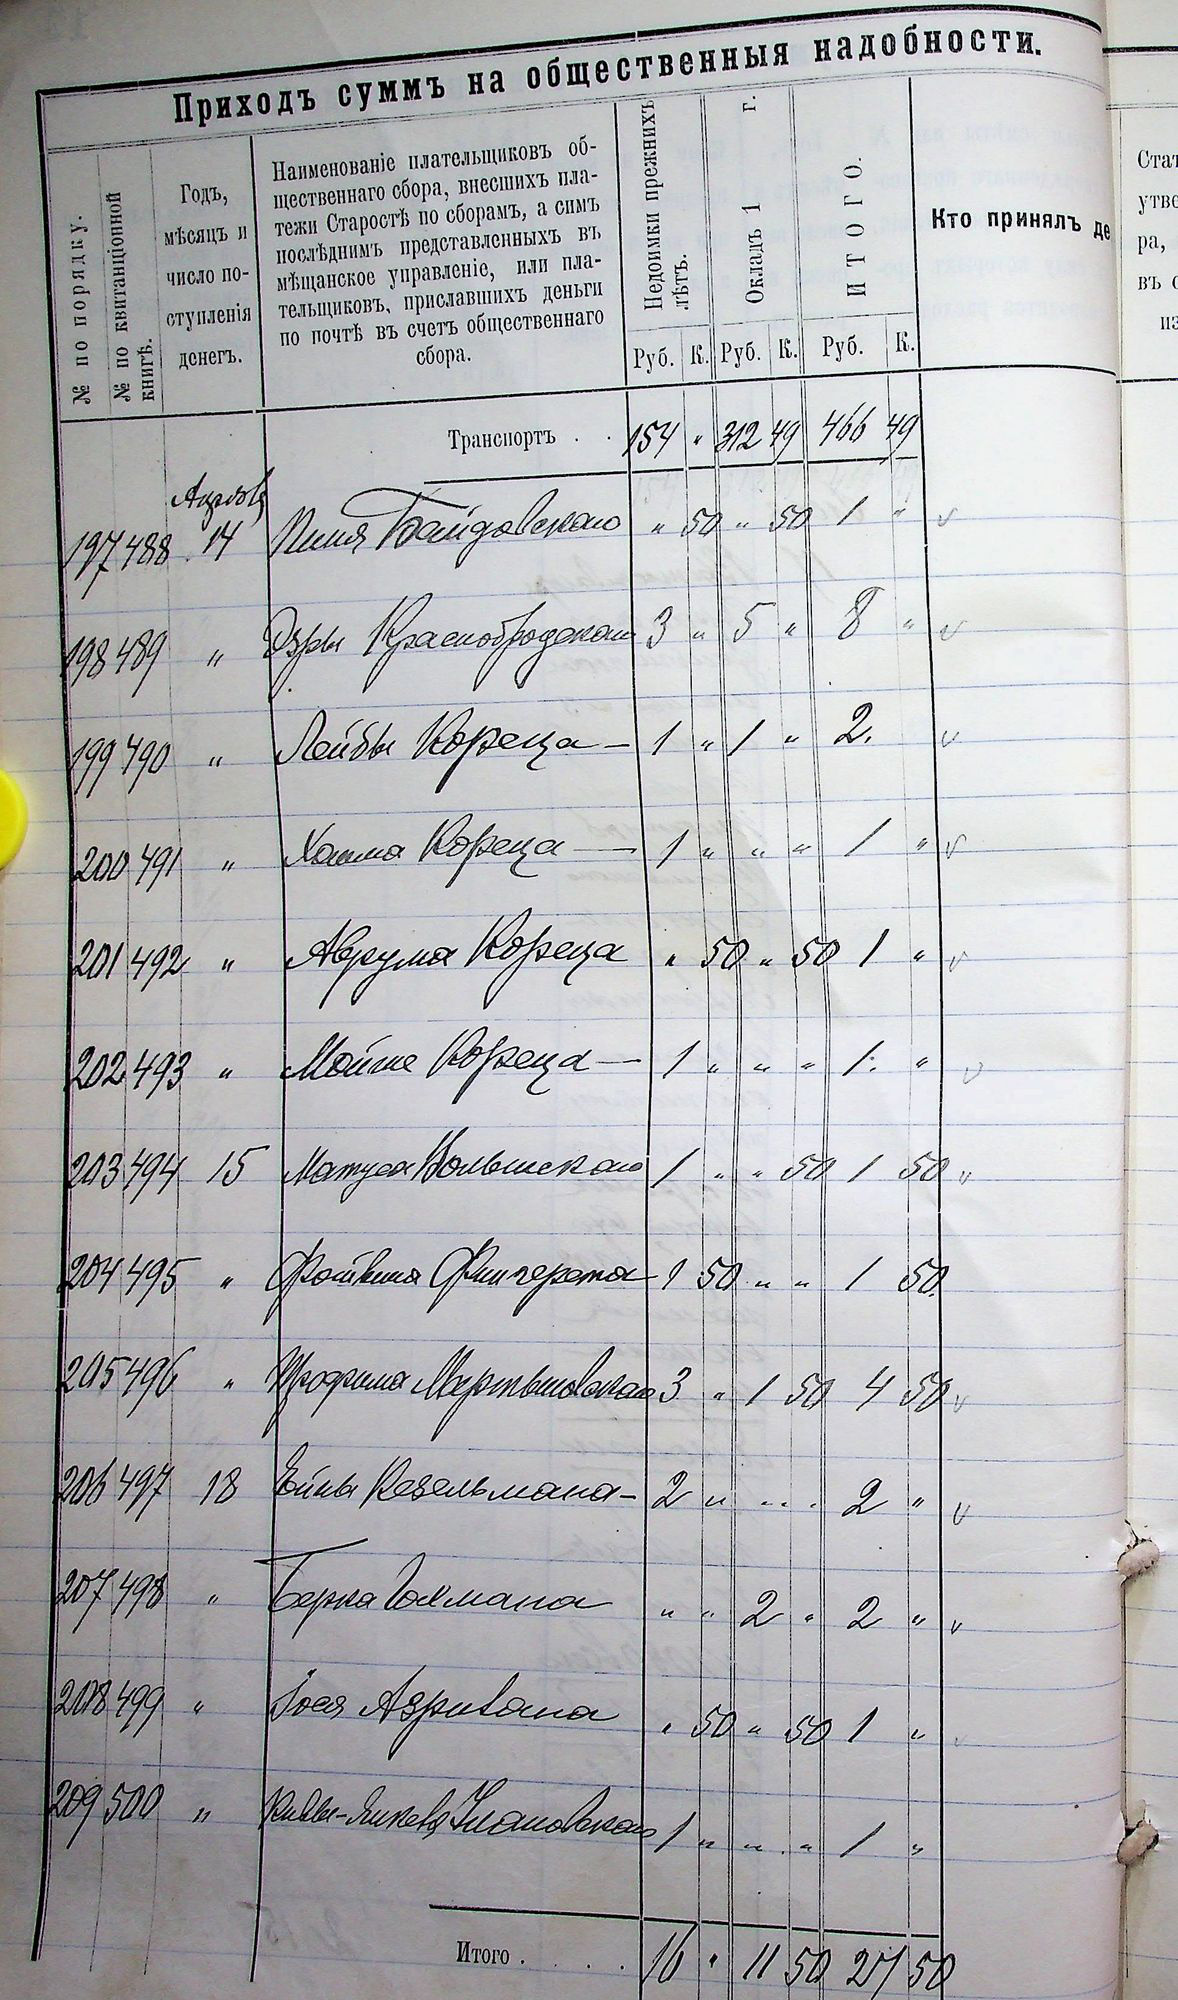 Приходъ суммъ на общественныя надобности.
№ по порядку.
№ по квитанціонной
книгѣ.
Годъ,
мѣсяцъ и
число по-
ступленія
денегъ.
Наименованіе плательщиковъ об-
щественнаго сбора, внесшихъ пла-
тежи Старостѣ по сборамъ, а симъ
послѣднимъ представленныхъ въ
мѣщанское управленіе, или пла-
тельщиковъ, приславшихъ деньги
по почтѣ въ счетъ общественнаго
сбора.
Недоимки прежнихъ
лѣтъ.
Окладъ 1 г.
ИТОГО.
Кто принялъ де
Руб. К. Руб. К. Руб. К.
Транспортъ . . 154 " 312 49 466 49
197 488 14 Пиня Байдовскаго " 50 " 50 1 "
198 489 " Эзры Краснобродскаго 3 " 5 " 8 "
199 490 " Лейбы Кореца — 1 " 1 " 2.
200 491 " Хаима Кореца — 1 " " " 1 "
201 492 " Аврума Кореца " 50 " 50 1 "
202 493 " Мойше Кореца — 1 " " " 1 "
203 494 15 Матуса Волынскаго 1 " " 50 1 50
204 495 " Фойвиша 1 50 " " 1 50
205 496 " 3 " 1 50 4 50
206 497 18 Кезельмана — 2 " " " 2 "
207 498 " Берка Гохмана " " 2 " 2 "
208 499 " Іося " 50 " 50 1 "
209 500 " Улановскаго 1 " " " 1 "
Итого . . . . 16 " 11 50 27 50
Стат
утве
ра,
въ с
из